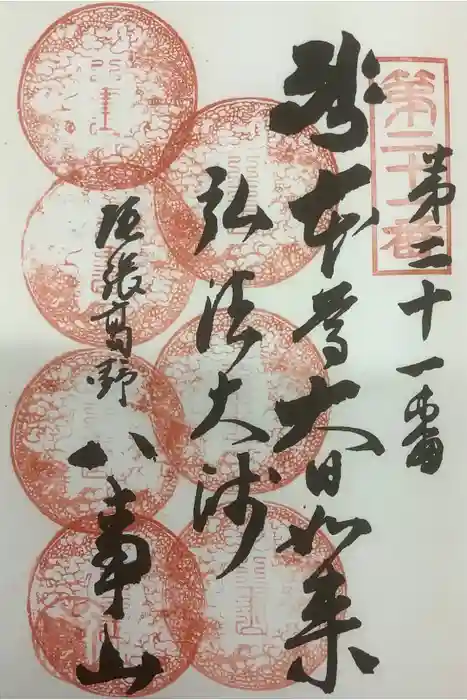 第二十一番
第二十一番
御本尊大日如来
弘法大師
尾張高野
八事山